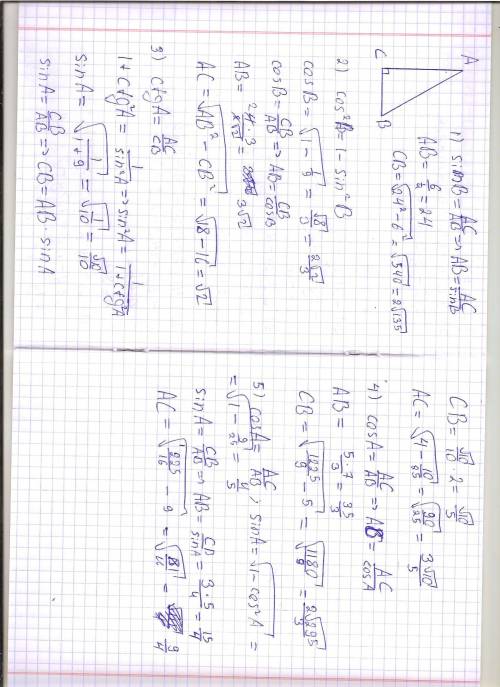 A
C
B
1) sinB = AC/AB => AB = AC/sinB
AB = 6/¼ = 24
CB = √(24² - 6²) = √540 = 2√135
2) cos²B = 1 - sin²B
cosB = √(1 - 1/9) = √8/3 = 2√2/3
cosB = CB/AB => AB = CB/cosB
AB = 4·3/2√2 = 3√2
AC = √(AB² - CB²) = √(18 - 16) = √2
3) ctgA = AC/CB
1 + ctg²A = 1/sin²A => sin²A = 1/(1 + ctg²A)
sinA = √(1/(1+9)) = √(1/10) = √10/10
sinA = CB/AB => CB = AB · sinA
CB = √10/10 · 2 = √10/5
AC = √(4 - 10/25) = √(90/25) = 3√10/5
4) cosA = AC/AB => AB = AC/cosA
AB = 5·7/3 = 35/3
CB = √(1225/9 - 5) = √(1180/9) = 2√295/3
5) cosA = AC/AB; sinA = √(1 - cos²A) =
= √(1 - 9/25) = 4/5
sinA = CB/AB => AB = CB/sinA = 3·5/4 = 15/4
AC = √(225/16 - 9) = √(81/16) = 9/4